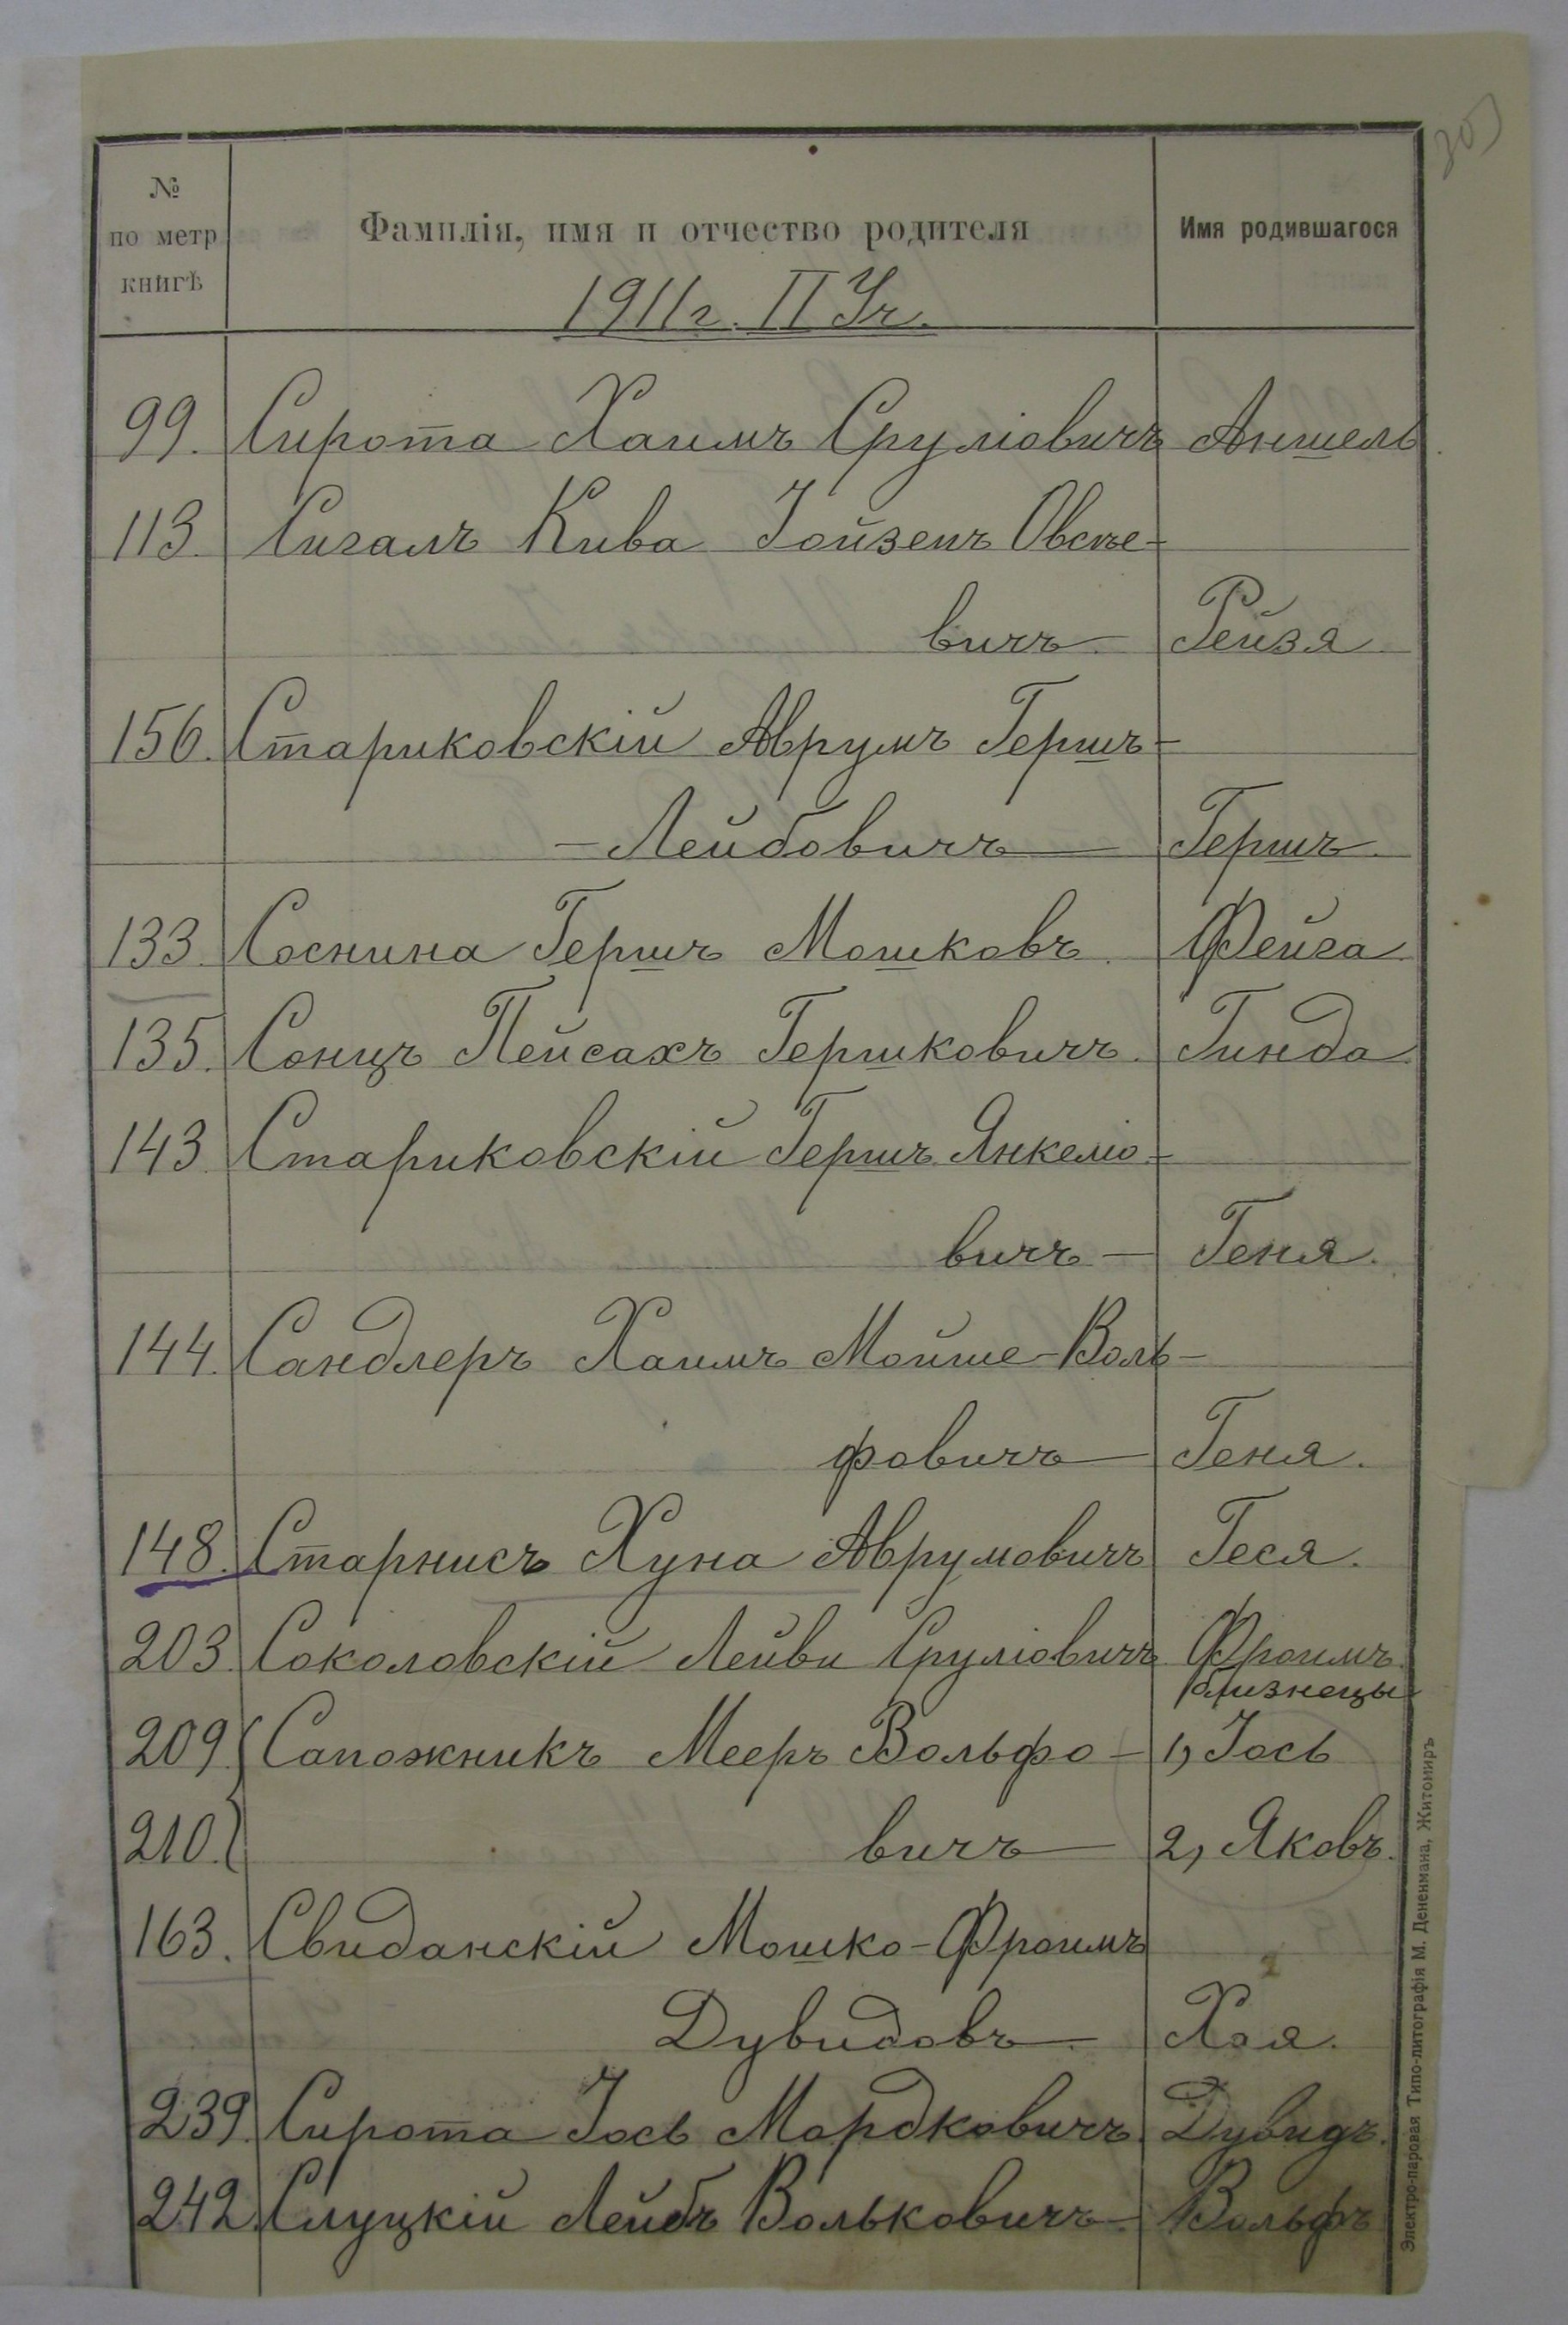 № по метр книгѣ | Фамилія, имя и отчество родителя | Имя родившагося
1911 г. II Уч.
99. Сирота Хаимъ Сруліовичъ Аншель
113. Сигалъ Кива Іойзепъ Овсѣе-
вичъ — Рейзя
156. Стариковскій Аврумъ Гершъ-
-Лейбовичъ — Гершъ.
133. Соснина Гершъ Мошковъ. Фейга.
135. Сонцъ Пейсахъ Гершковичъ. Гинда.
143. Стариковскій Гершъ Янкеліо-
вичъ — Геня.
144. Сандлеръ Хаимъ Мойше-Воль-
фовичъ — Геня.
148. Старнисъ Хуна Аврумовичъ Геся.
203. Соколовскій Лейви Сруліовичъ Фроимъ.
близнецы
209. Сапожникъ Мееръ Вольфо- 1, Іось
210. вичъ — 2, Яковъ.
163. Свиданскій Мошко-Фроимъ
Дувидовъ. Хая.
239. Сирота Іось Мордковичъ. Дувидъ.
242. Слуцкій Лейбъ Вольковичъ. Вольфъ
Электро-паровая Типо-литографія М. Дененмана, Житомиръ